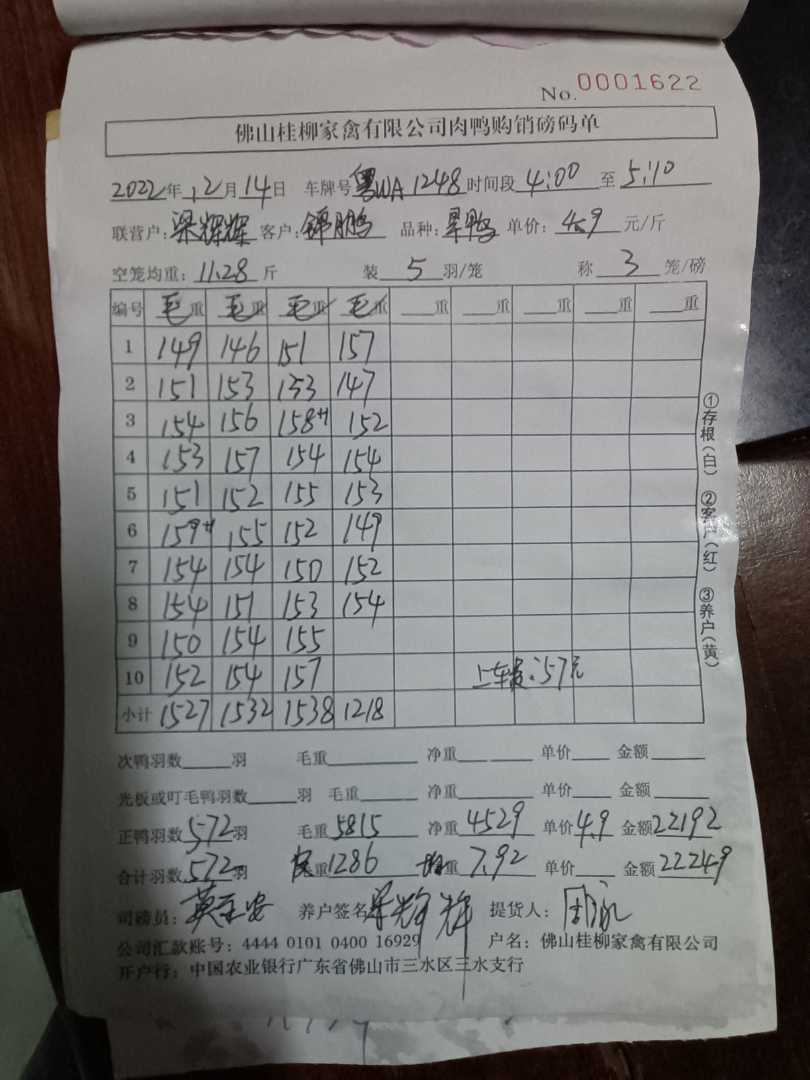 No. 0001622
佛山桂柳家禽有限公司肉鸭购销磅码单
2022年12月14日 车牌号粤WA 1248 时间段 4:00 至 5:10
联营户:梁辉辉 客户:锦鹏 品种: 单价: 4.9 元/斤
空笼均重: 11.28 斤 装 5 羽/笼 称 3 笼/磅
编号 毛重 毛重 毛重 毛重 重 重 重 重 重
1 149 146 151 157
2 151 153 153 147
3 154 156 158+1 152
4 153 157 154 154
5 151 152 155 153
6 159+1 155 152 149
7 154 154 150 152
8 154 151 153 154
9 150 154 155
10 152 154 157 上车费:57元
小计 1527 1532 1538 1218
①存根(白) ②客户(红) ③养户(黄)
次鸭羽数 羽 毛重 净重 单价 金额
光板或叮毛鸭羽数 羽 毛重 净重 单价 金额
正鸭羽数 572 羽 毛重 5815 净重 4529 单价 4.9 金额 22192
合计羽数 572 羽 重 1286 均重 7.92 单价 金额 22249
司磅员: 养户签名 梁辉辉 提货人:
公司汇款账号: 4444 0101 0400 16929 户名: 佛山桂柳家禽有限公司
开户行: 中国农业银行广东省佛山市三水区三水支行